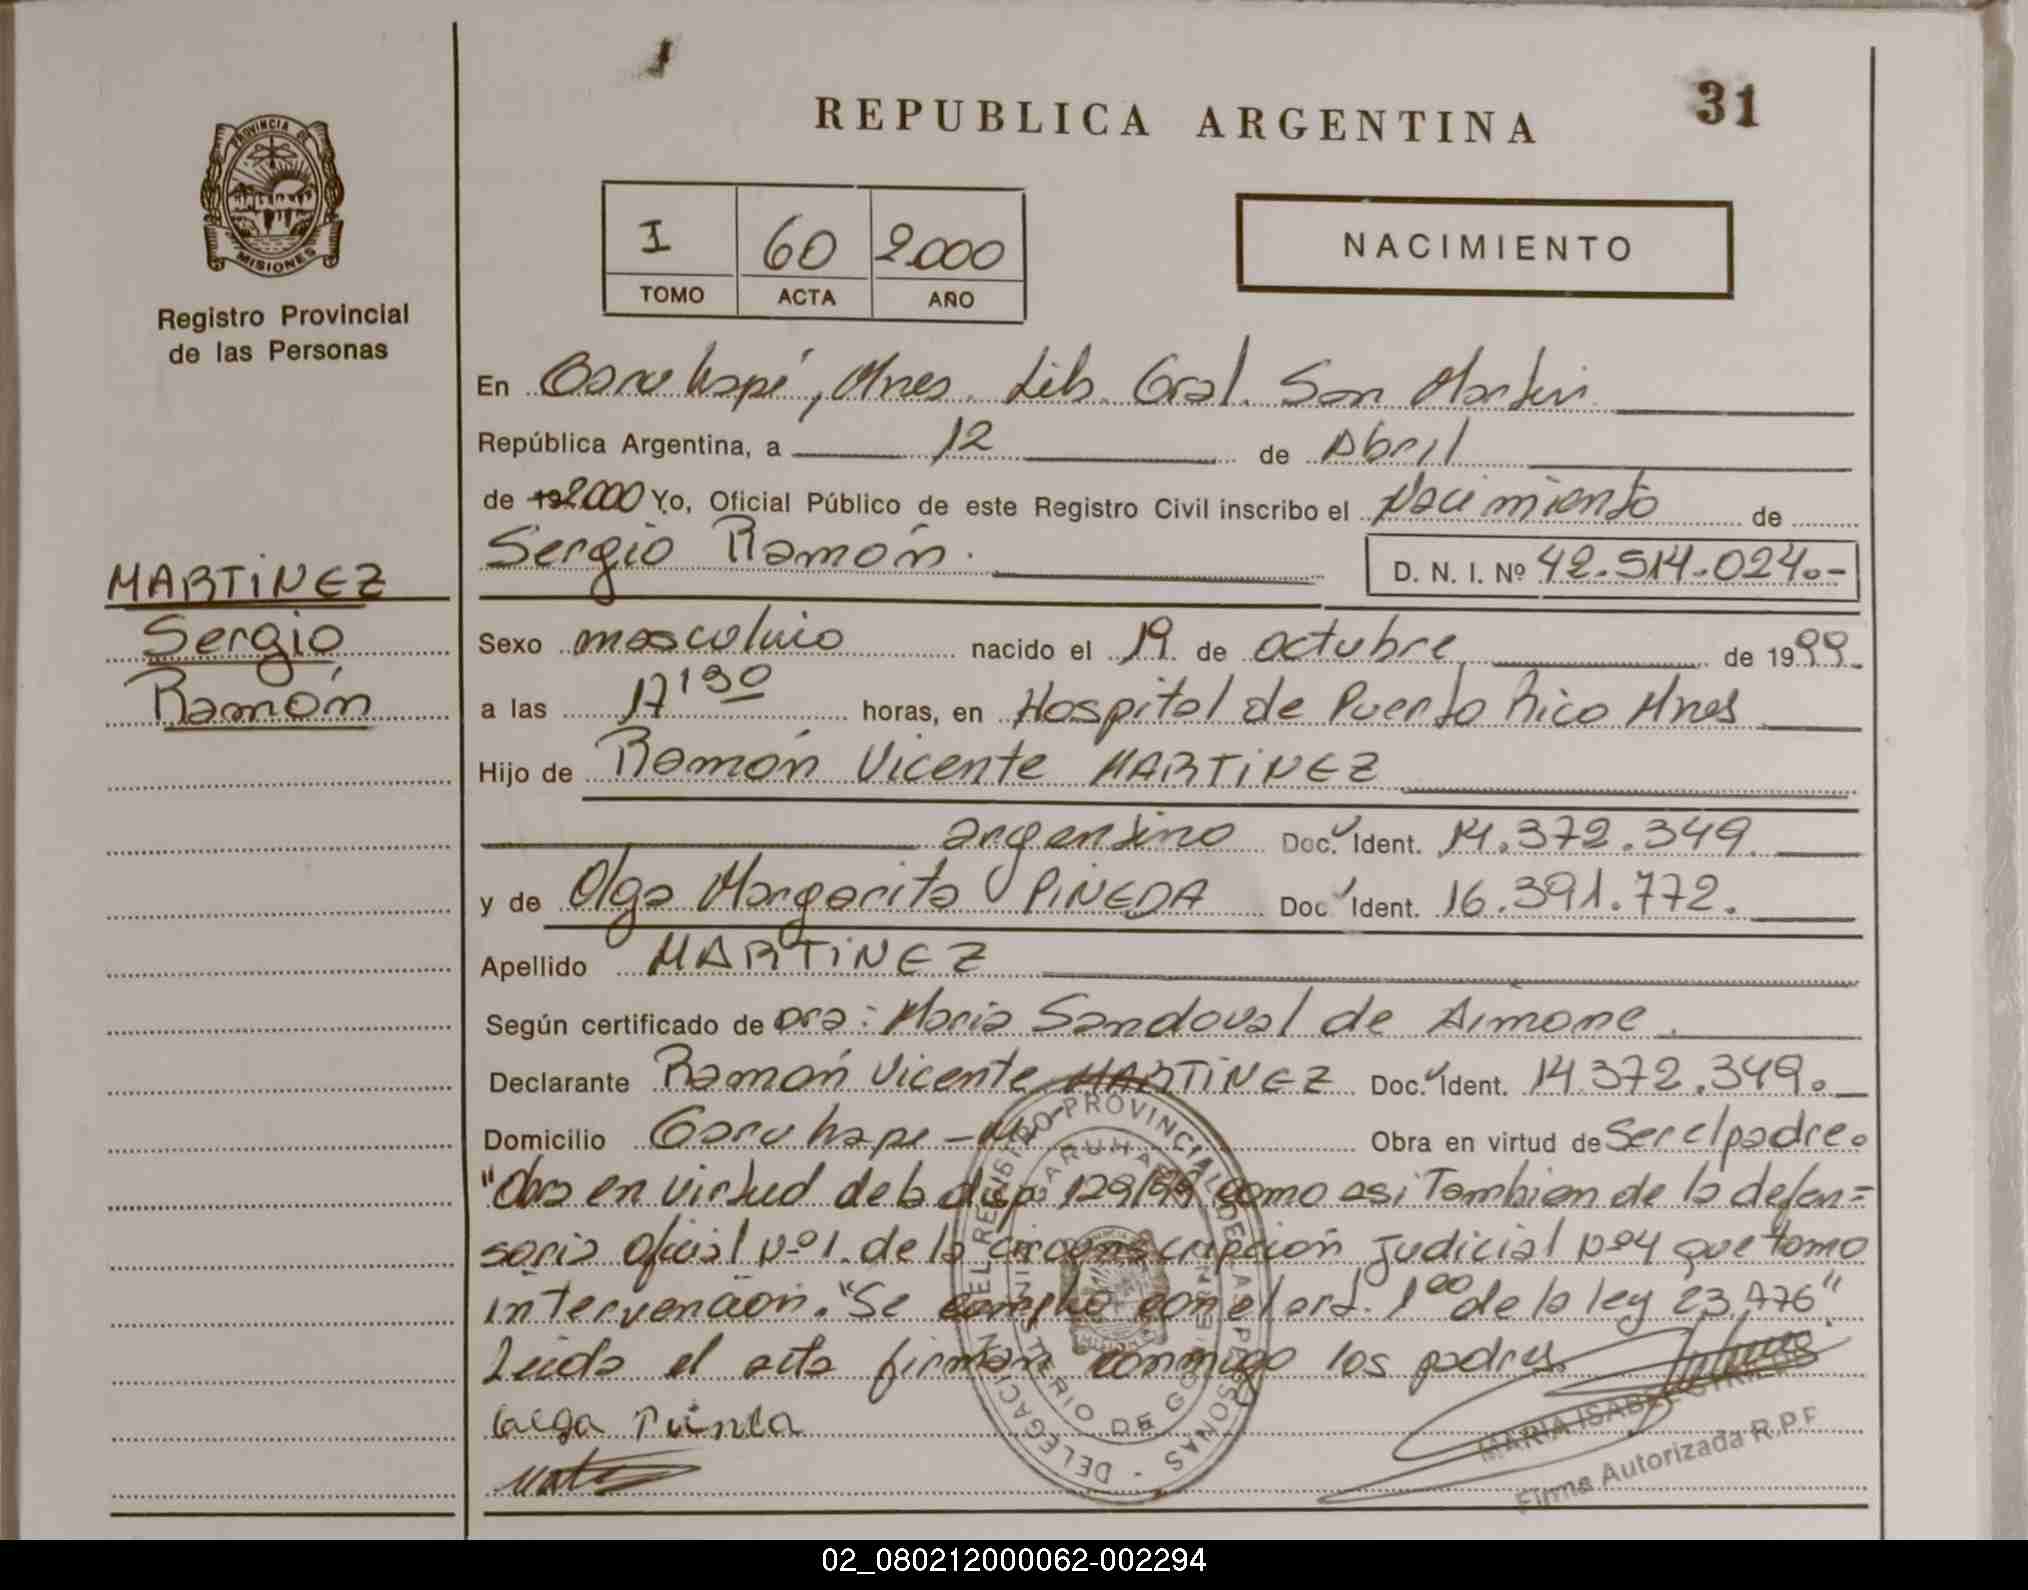 31
REPUBLICA ARGENTINA
PROVINCIA DE
MISIONES
Registro Provincial
de las Personas
I 60 2000
TOMO ACTA AÑO
NACIMIENTO
En Garuhapé, Mnes. Lib. Gral. San Martin
República Argentina, a 12 de Abril
de 192000 Yo, Oficial Público de este Registro Civil inscribo el Nacimiento de
Sergio Ramón. D. N. I. Nº 42.514.024.-
MARTINEZ
Sergio
Ramón
Sexo masculino nacido el 19 de octubre de 1999.
a las 17'30 horas, en Hospital de Puerto Rico Mnes
Hijo de Ramón Vicente MARTINEZ
argentino Doc. Ident. 14.372.349.
y de Olga Margarita PINEDA Doc Ident. 16.391.772.
Apellido MARTINEZ
Según certificado de Dra: Maria Sandoval de Aimone.
Declarante Ramón Vicente MARTINEZ Doc. Ident. 14.372.349.
Domicilio Garuhape - M. Obra en virtud de Ser el padre.
"Obra en virtud de la disp 129/99 como asi Tambien de la defen=
soria oficial Nº 1. de la circunscripción judicial Nº 4 que tomo
intervención. "Se cumplio con el art. 1º de la ley 23.776"
Leida el acta firman conmigo los padres.
Olga Pineda
MARIA ISABEL
Firma Autorizada R.P.P
DELEGACION DEL REGISTRO PROVINCIAL DE LAS PERSONAS
GARUHAPE
MINISTERIO DE GOBIERNO
02_080212000062-002294